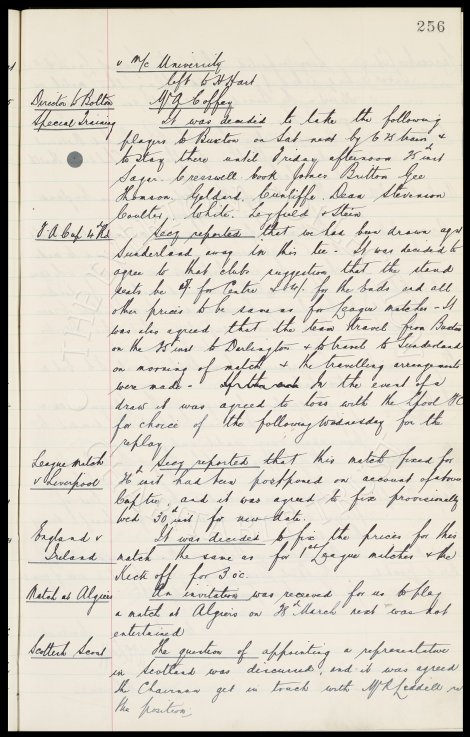 256
v M/c University
left to H Hart
Director to Bolton Mr A Coffey
Special Training It was decided to take the following
players to Buxton on Sat next by 6.25 train &
to stay there until Friday afternoon 25th inst
Sagar. Cresswell Cook Jones Britton Gee
Thomson Geldard. Cunliffe. Dean Stevenson
Coulter, White. Leyfield & Stein
F A Cup 4th Rd Secy reported that we had been drawn agst
Sunderland away in this tie. It was decided to
agree to that clubs suggestion that the stand
seats be for Centre & for the ends and all
other prices to be same as for League matches - It
was also agreed that the team travel from Buxton
on the 25 inst to Darlington & to travel to Sunderland
on morning of match & the travelling arrangements
were made - In the event of a
draw it was agreed to toss with the L'pool FC
for choice of the following Wednesday for the
replay
League match Secy reported that this match fixed for
v Liverpool 26th inst had been postponed on account of above
Cup tie, and it was agreed to fix provisionally
Wed. 30th inst for new date.
England v It was decided to fix the prices for this
Ireland match the same as for 1st League matches & the
Kick off for 3 oc.
Match at Algiers An invitation was received for us to play
a match at Algiers on 28th March next was not
entertained
Scottish Scout The question of appointing a representative
in Scotland was discussed, and it was agreed
the Chairman get in touch with Mr R Liddell re
the position.